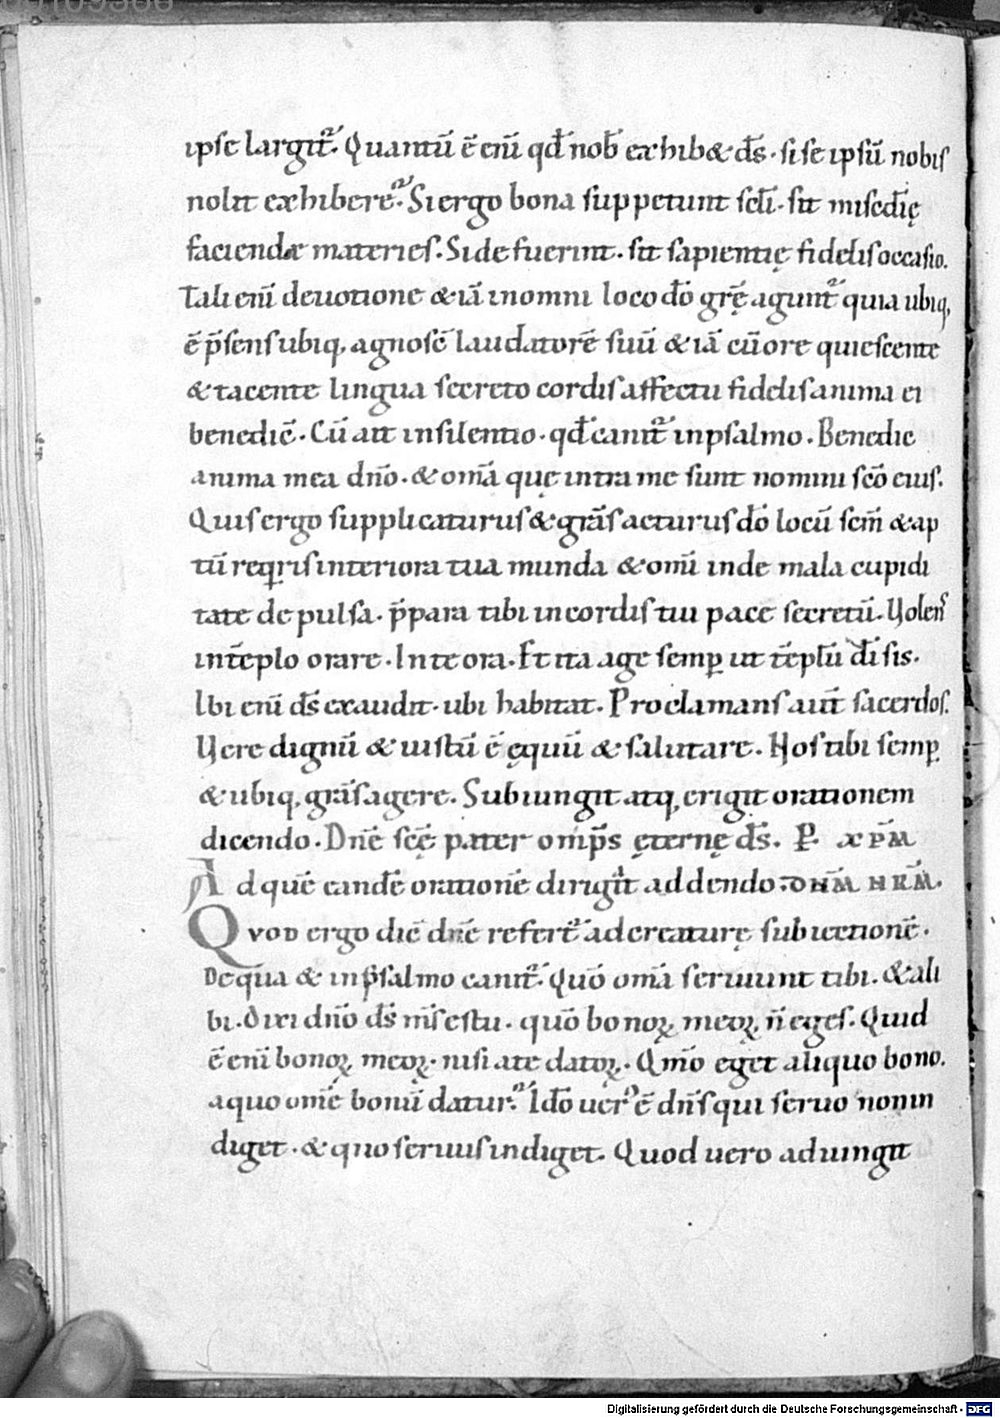 ipse largit᷑. Quantū ē enī qd̄ nob̄ exhib& d̄s. si se ipsū nobis
nolit exhibere᷑. Si ergo bona suppetunt sc̄li. sit misc̄dię
faciendæ materies. Si defuerint. sit sapientię fidelis occasio.
Tali enī deuotione &iā in omni loco dō gr̄ę agunt᷑ quia ubiq,
ē p̄sens ubiq, agnoscē laudatorē suū &iā cū ore quiescente
& tacente lingua secreto cordis affectu fidelis anima ei
benedic̄. Cū ait in silentio. qd̄ canit᷑ in psalmo. Benedic
anima mea dn̄o. & om̄a quę intra me sunt nomini scō eius.
Quis ergo supplicaturus & grās acturus dō locū scm̄ & ap
tū reqͥris interiora tua munda & omī inde mala cupidi
tate depulsa. p̄para tibi in cordis tui pace secretū. Uolens
in tēplo orare. In te ora. Et ita age semꝑ ut tēplū dī sis.
Ibi enī d̄s exaudit. ubi habitat. Proclamans aut̄ sacerdos.
Uere dignū & iustū ē ęquū & salutare. Nos tibi semꝑ
& ubiq, grās agere. Subiungit atq, erigit orationem
dicendo. Dn̄e scē pater omp̄s ęternę d̄s. P. xp̄m
Ad quē eandē orationē dirigit addendo. DN̄M NR̄M.
Qvod ergo diē dn̄e refert᷑ ad creaturę subiectionē.
De qūa & in p̄salmo canit᷑. Quō om̄a seruiunt tibi. & ali
bi. Dixi dn̄o d̄s m̄s es tu. quō bonoꝝ meoꝝ n̄ eges. Quid
ē enī bonoꝝ meoꝝ. nisi a te datoꝝ. Qm̄o eget aliquo bono.
a quo om̄e bonū datur᷑. Idō uerͦ ē dn̄s qui seruo non in
diget. & quo seruus indiget. Quod uero adiungit
Digitalisierung gefördert durch die Deutsche Forschungsgemeinschaft - DFG